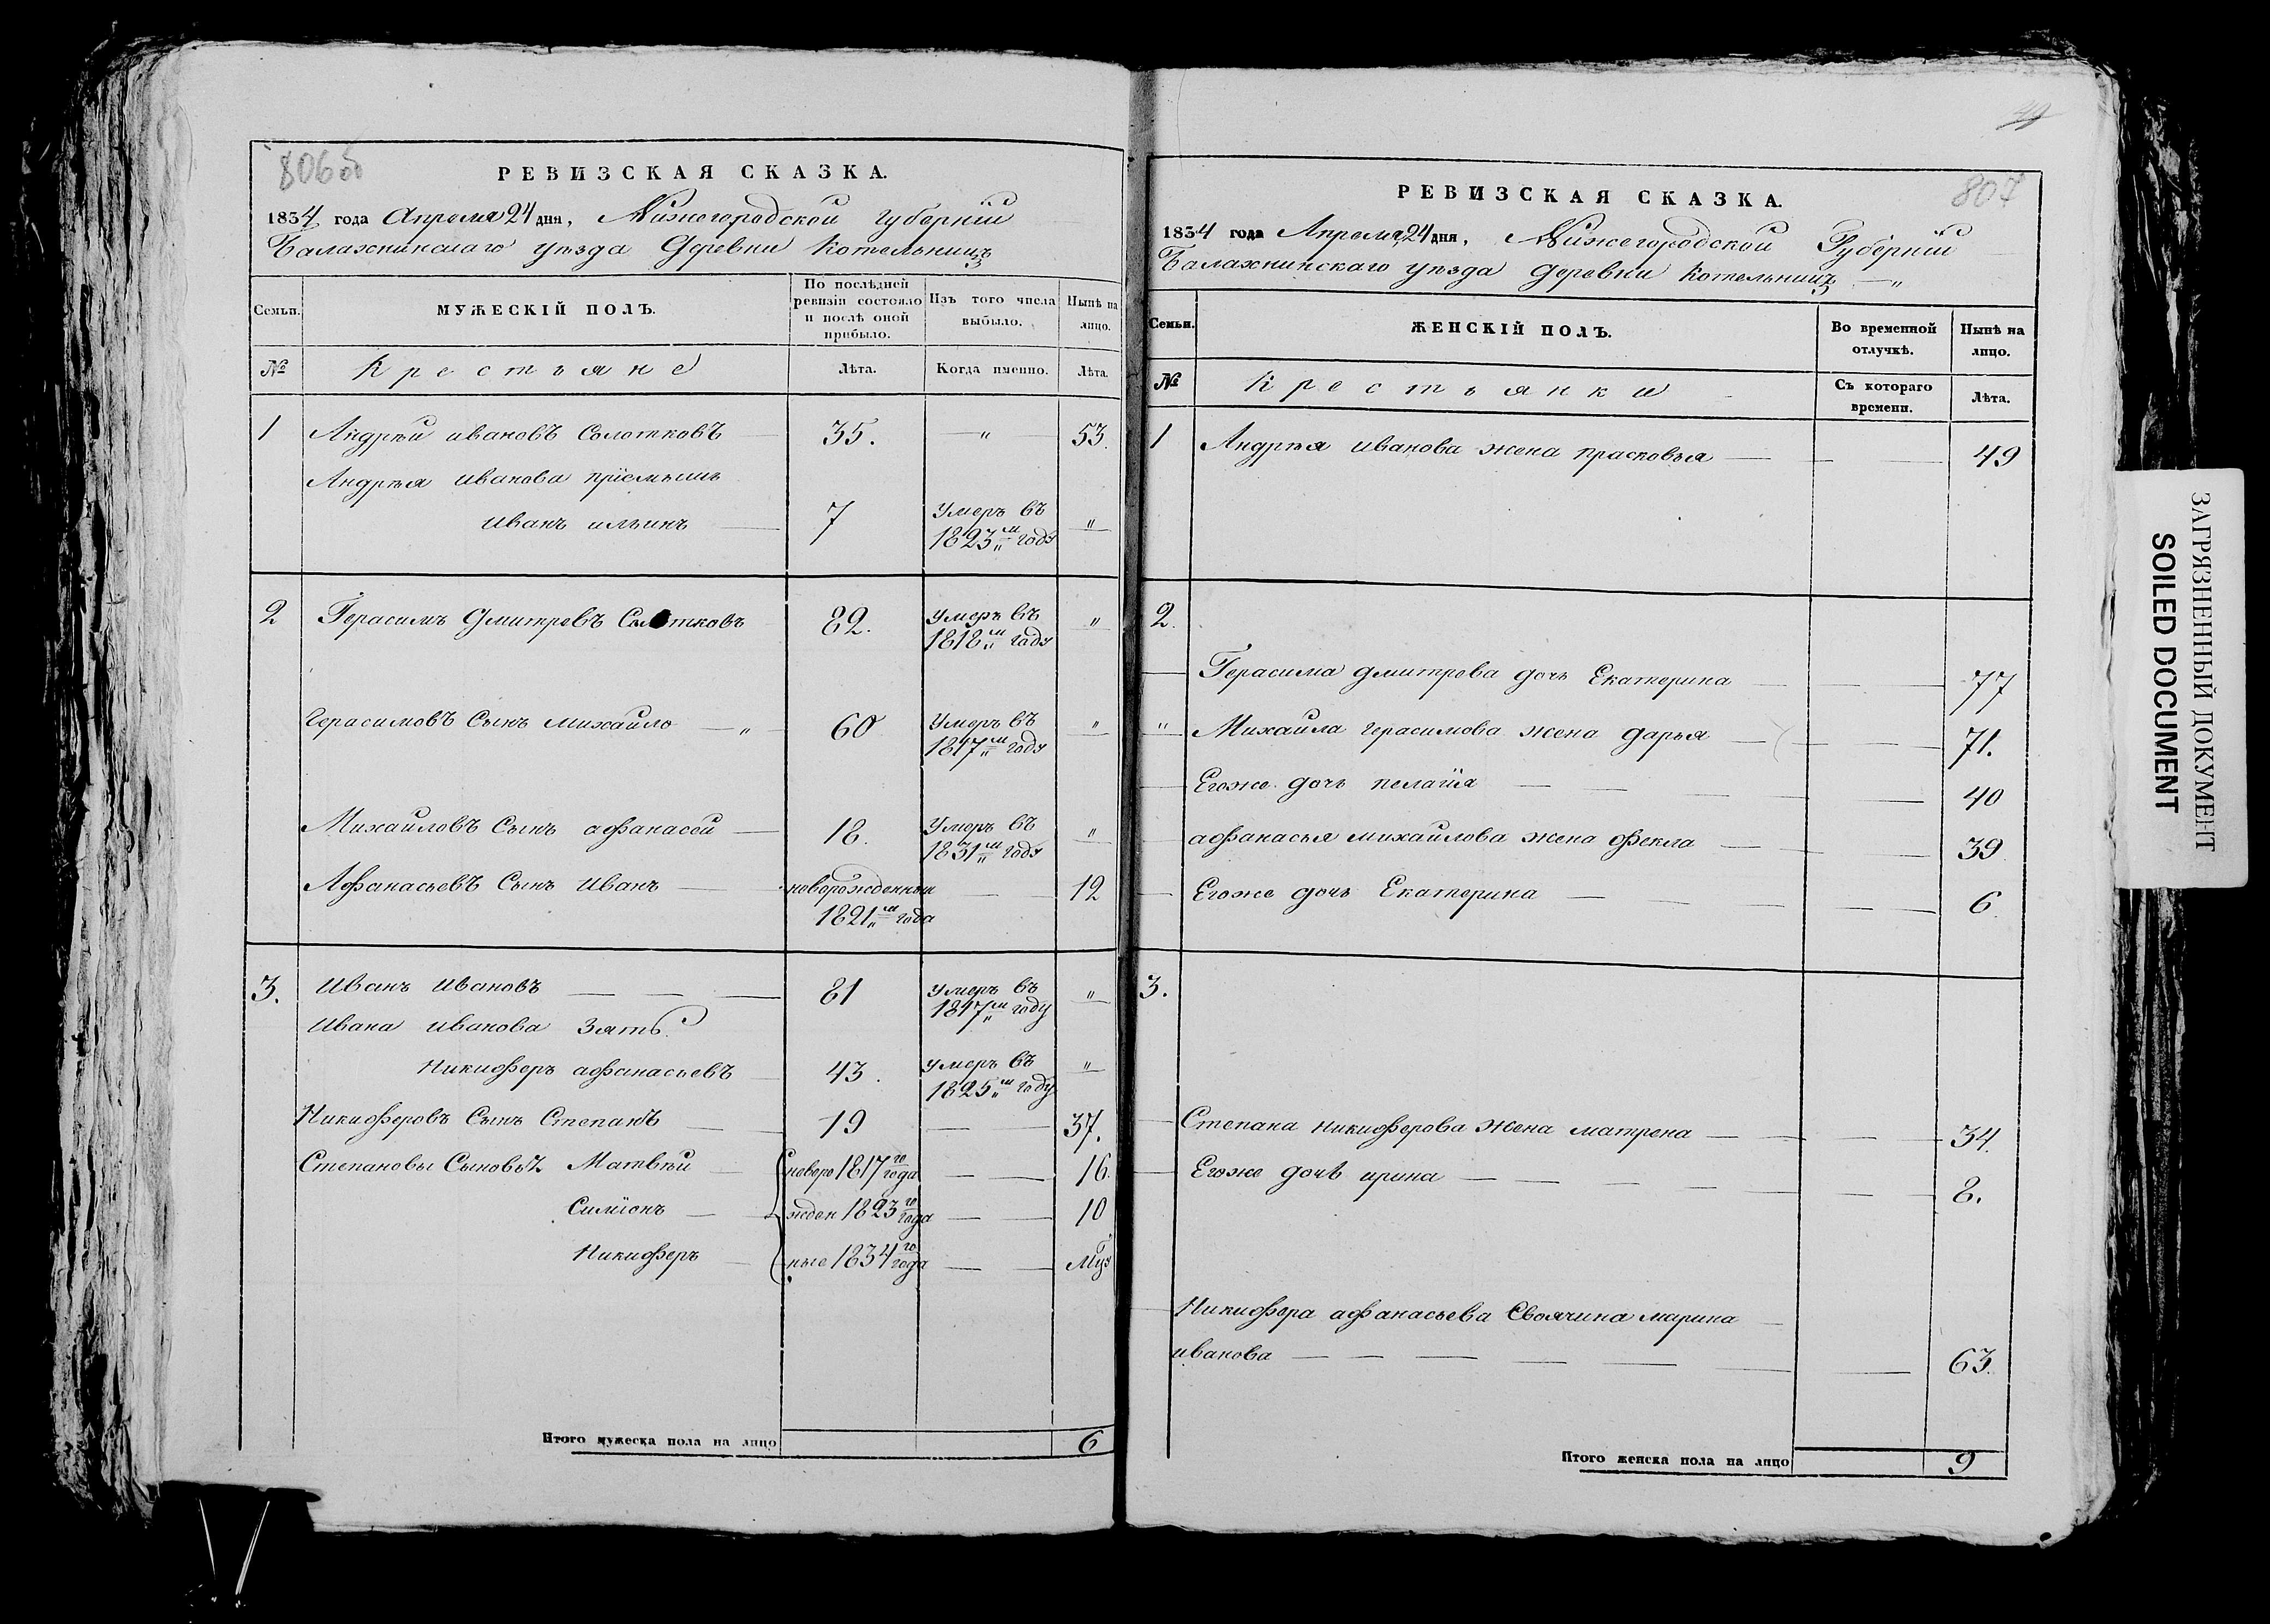 806об
РЕВИЗСКАЯ СКАЗКА.
1834 года Апреля 24 дня, Нижегородской губернiи
Балахнинскаго уѣзда деревни Котельницъ
Семьи.
МУЖЕСКІЙ ПОЛЪ.
По послѣдней
ревизіи состояло
и послѣ оной
прибыло.
Изъ того числа
выбыло.
Нынѣ на
лицо.
№
Крестьяне
Лѣта.
Когда именно.
Лѣта.
1 Андрѣй ивановъ Солотковъ 35. — " 53.
Андрѣя иванова прiемышъ
иванъ ильинъ 7 Умеръ въ
1823м году "
2 Герасимъ Дмитревъ Солотковъ 82. Умеръ въ
1818м году "
Герасимовъ Сынъ михайло — " 60 Умеръ въ
1817м году "
Михайловъ Сынъ афанасей — 18. Умеръ въ
1831м году "
Афанасьевъ Сынъ иванъ — новорожденный — 12
1821м года
3. иванъ ивановъ — — — 81 Умеръ въ
1817м году "
ивана иванова зять
никифоръ афанасьевъ 43. Умеръ въ
1825м году "
никифоровъ Сынъ Степанъ — 19 — — 37.
Степановы Сыновья Матвѣй — новоро 1817го года — — 16.
Симiонъ — жден 1823го года — — 10
никифоръ — ные 1834го года — — Му3
Итого мужеска пола на лицо 6
49
807
РЕВИЗСКАЯ СКАЗКА.
1834 года Апреля 24 дня, Нижегородской Губернiи
Балахнинскаго уѣзда деревни Котельницъ — "
Семьи.
ЖЕНСКІЙ ПОЛЪ.
Во временной
отлучкѣ.
Нынѣ на
лицо.
№
Крестьянки
Съ котораго
времени.
Лѣта.
1 Андрѣя иванова жена прасковья — — — 49
2.
Герасима дмитрева дочь Екатерина — — — 77
" Михайла герасимова жена дарья — — — 71.
Егоже дочь пелагiя — — — — 40
афанасья михайлова жена фекла — — — 39
Егоже дочь Екатерина — — — — 6
3.
Степана никифорова жена матрена — — — 34.
Егоже дочь ирина — — — — 8.
никифора афанасьева Своячина марина
иванова — — — — — — 63.
Итого женска пола на лицо 9
ЗАГРЯЗНЕННЫЙ ДОКУМЕНТ
SOILED DOCUMENT